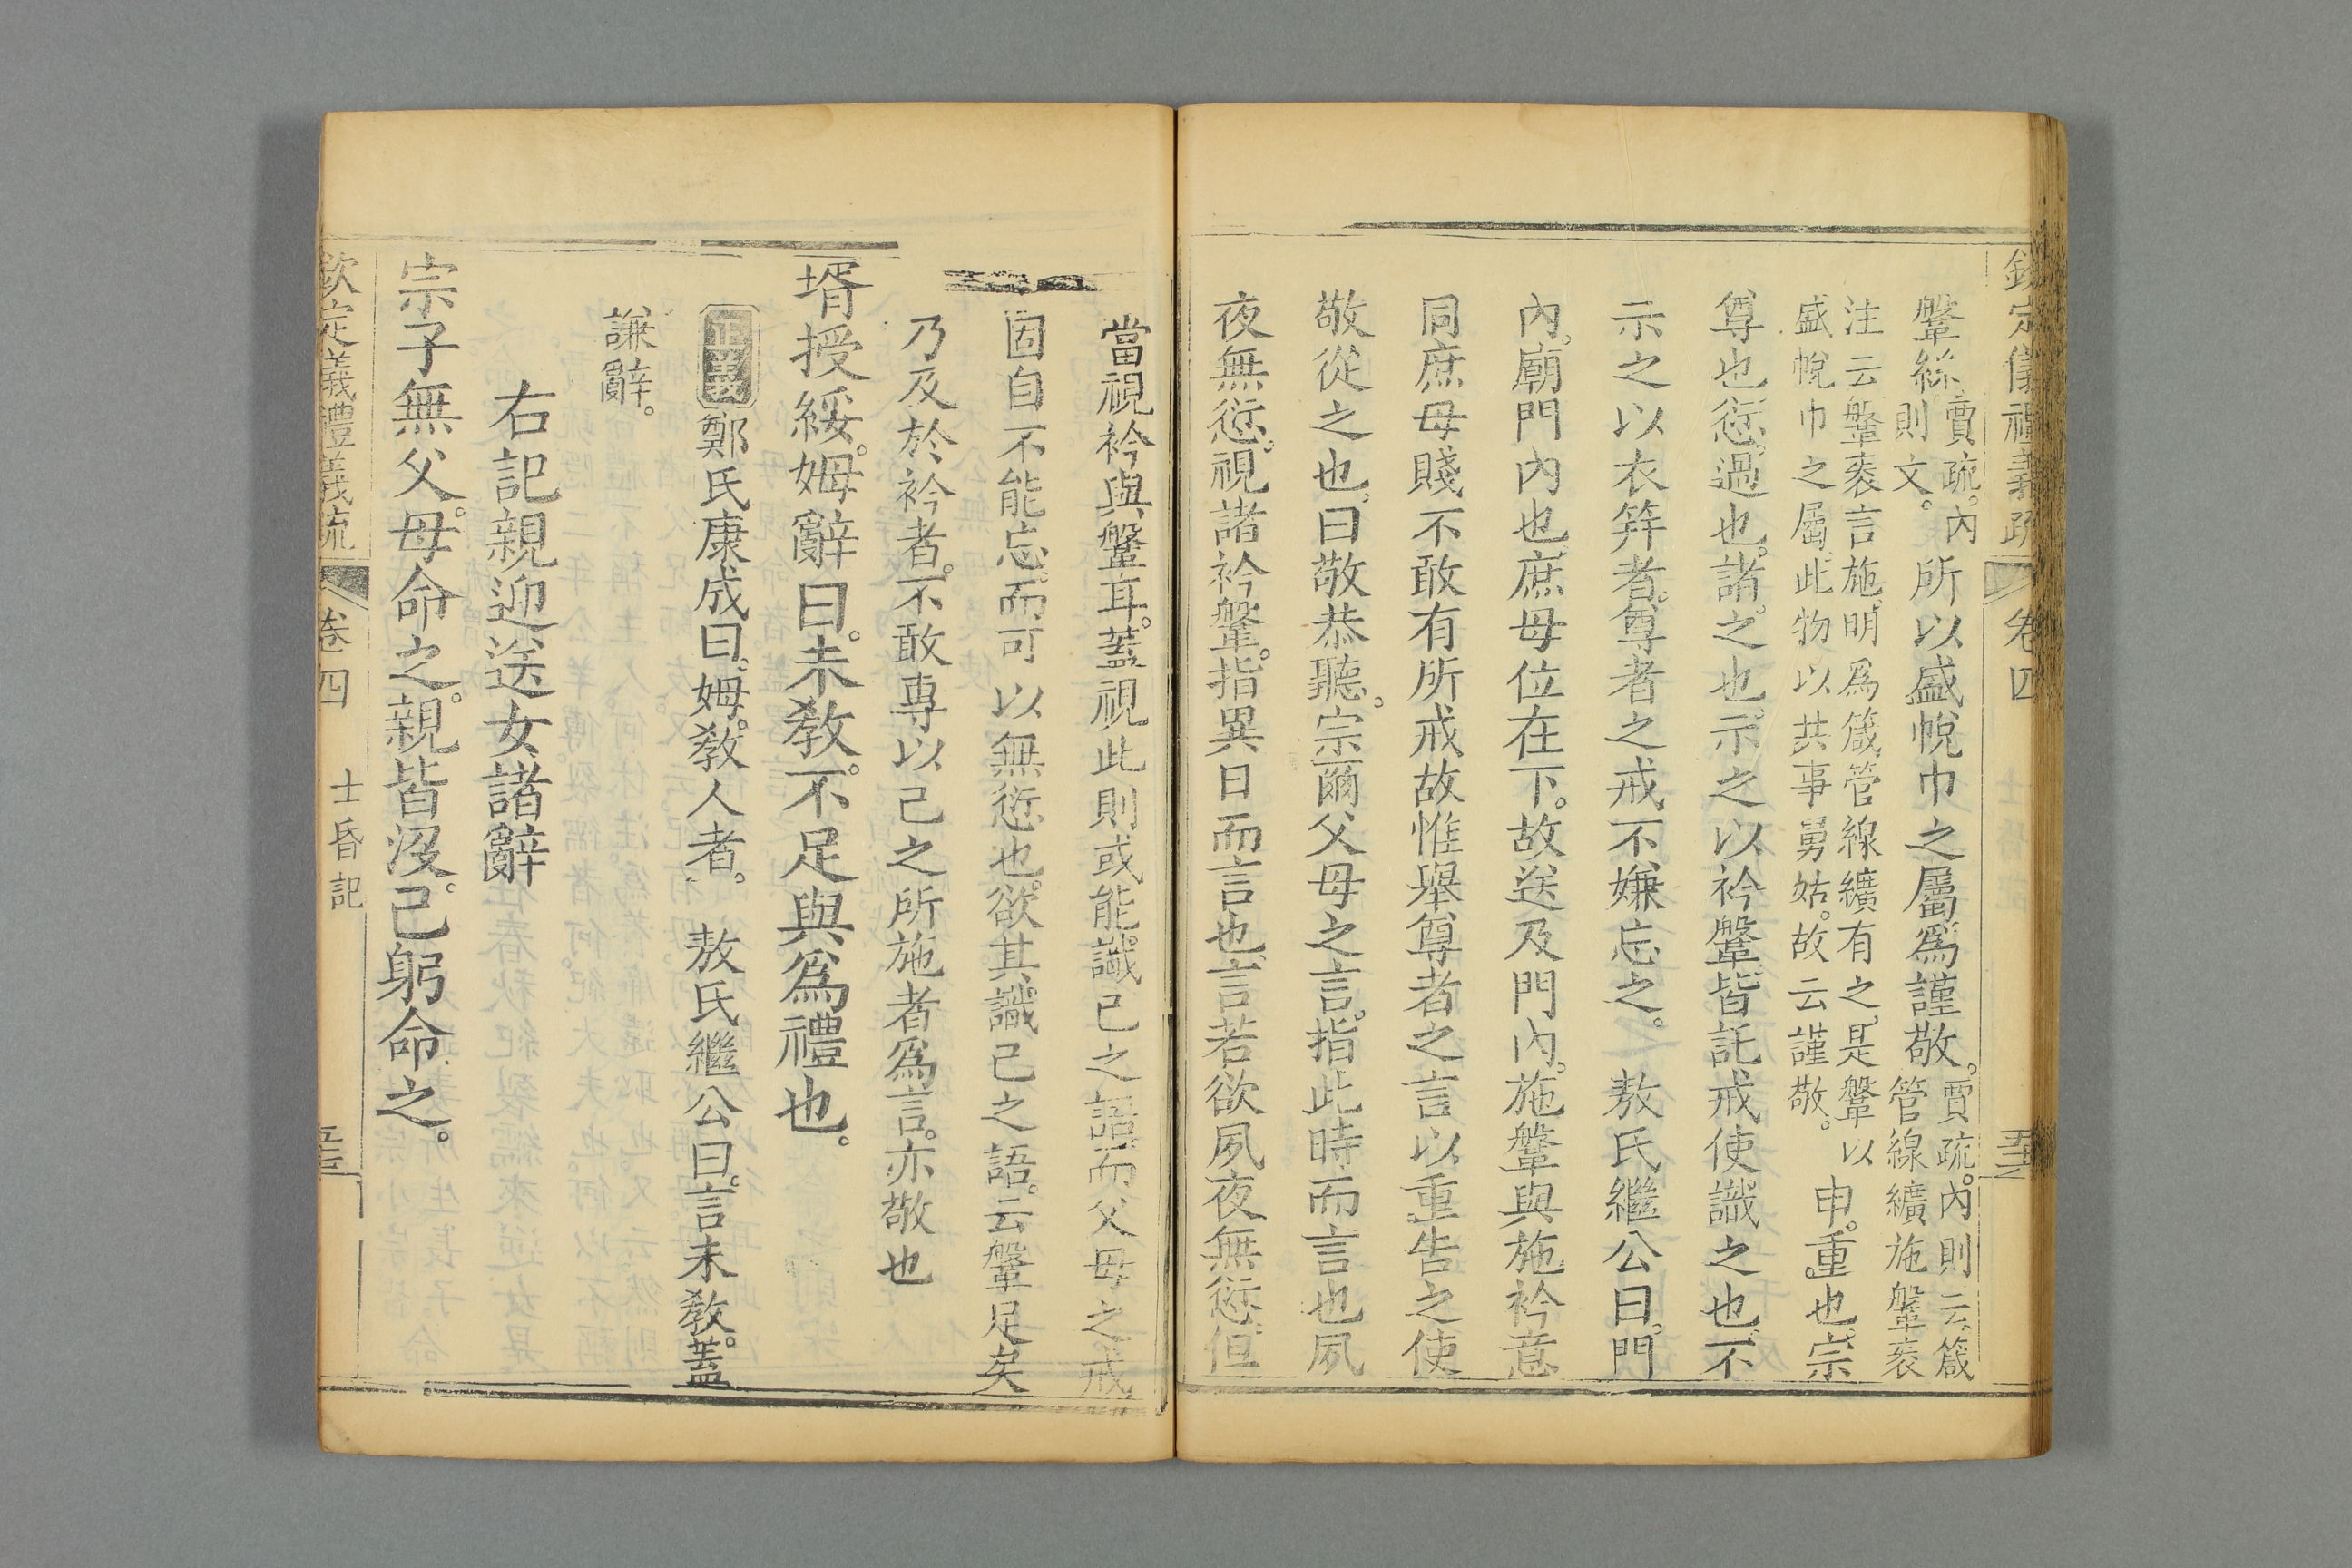 欽定儀禮義疏 卷四 五十二
鞶絲賈疏內則文。所以盛帨巾之屬爲謹敬。賈疏內則云箴管線纊施鞶袠
注云鞶袠言施明爲箴管線纊有之是鞶以盛帨巾之屬此物以共事舅姑。故云謹敬。申。重也宗
尊也愆。過也。諸。之也。示之以衿鞶皆託戒使識之也不
示之以衣筓者。尊者之戒不嫌忘之。 敖氏繼公曰門
內。廟門內也庶母位在下。故送及門內。施鞶與施衿意
同庶母賤不敢有所戒故惟舉尊者之言以重告之使
敬從之也曰敬恭聽。宗爾父母之言。指此時而言也夙
夜無愆。視諸衿鞶。指異日而言也言若欲夙夜無愆但
當視衿與鞶耳。蓋視此則或能識已之語而父母之戒
固自不能忘。而可以無愆也。欲其識已之語。云鞶足矣
乃及於衿者。不敢專以己之所施者爲言。亦敬也
壻授綏。姆辭曰。未敎。不足與爲禮也。
正義鄭氏康成曰。姆。敎人者。 敖氏繼公曰。言未敎。蓋
謙辭。
右記親迎送女諸辭
宗子無父。母命之。親皆沒。己躬命之。
欽定儀禮義疏 卷四 士昏記 五十三